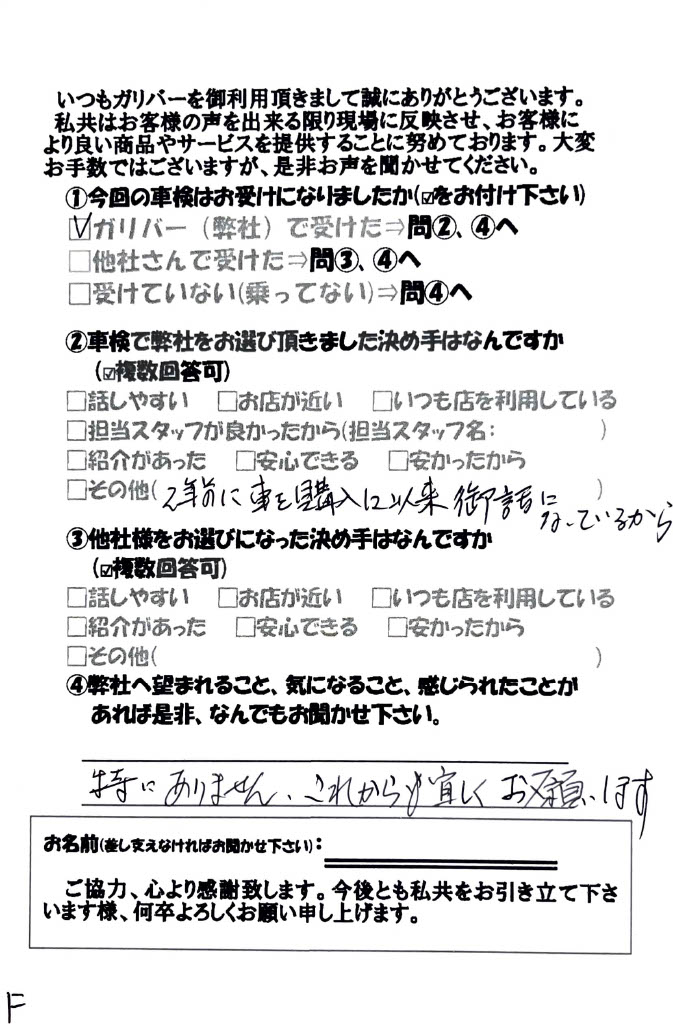 いつもガリバーを御利用頂きまして誠にありがとうございます。
私共はお客様の声を出来る限り現場に反映させ、お客様に
より良い商品やサービスを提供することに努めております。大変
お手数ではございますが、是非お声を聞かせてください。
①今回の車検はお受けになりましたか(☑をお付け下さい)
☑ガリバー（弊社）で受けた⇒問②、④へ
□他社さんで受けた⇒問③、④へ
□受けていない(乗ってない)⇒問④へ
②車検で弊社をお選び頂きました決め手はなんですか
(☑複数回答可)
□話しやすい □お店が近い □いつも店を利用している
□担当スタッフが良かったから(担当スタッフ名: )
□紹介があった □安心できる □安かったから
□その他(2年前に車を購入に以来御話になっているから)
③他社様をお選びになった決め手はなんですか
(☑複数回答可)
□話しやすい □お店が近い □いつも店を利用している
□紹介があった □安心できる □安かったから
□その他( )
④弊社へ望まれること、気になること、感じられたことが
あれば是非、なんでもお聞かせ下さい。
特にありません、これからも宜しくお願いします
お名前(差し支えなければお聞かせ下さい):
ご協力、心より感謝致します。今後とも私共をお引き立て下さ
います様、何卒よろしくお願い申し上げます。
F